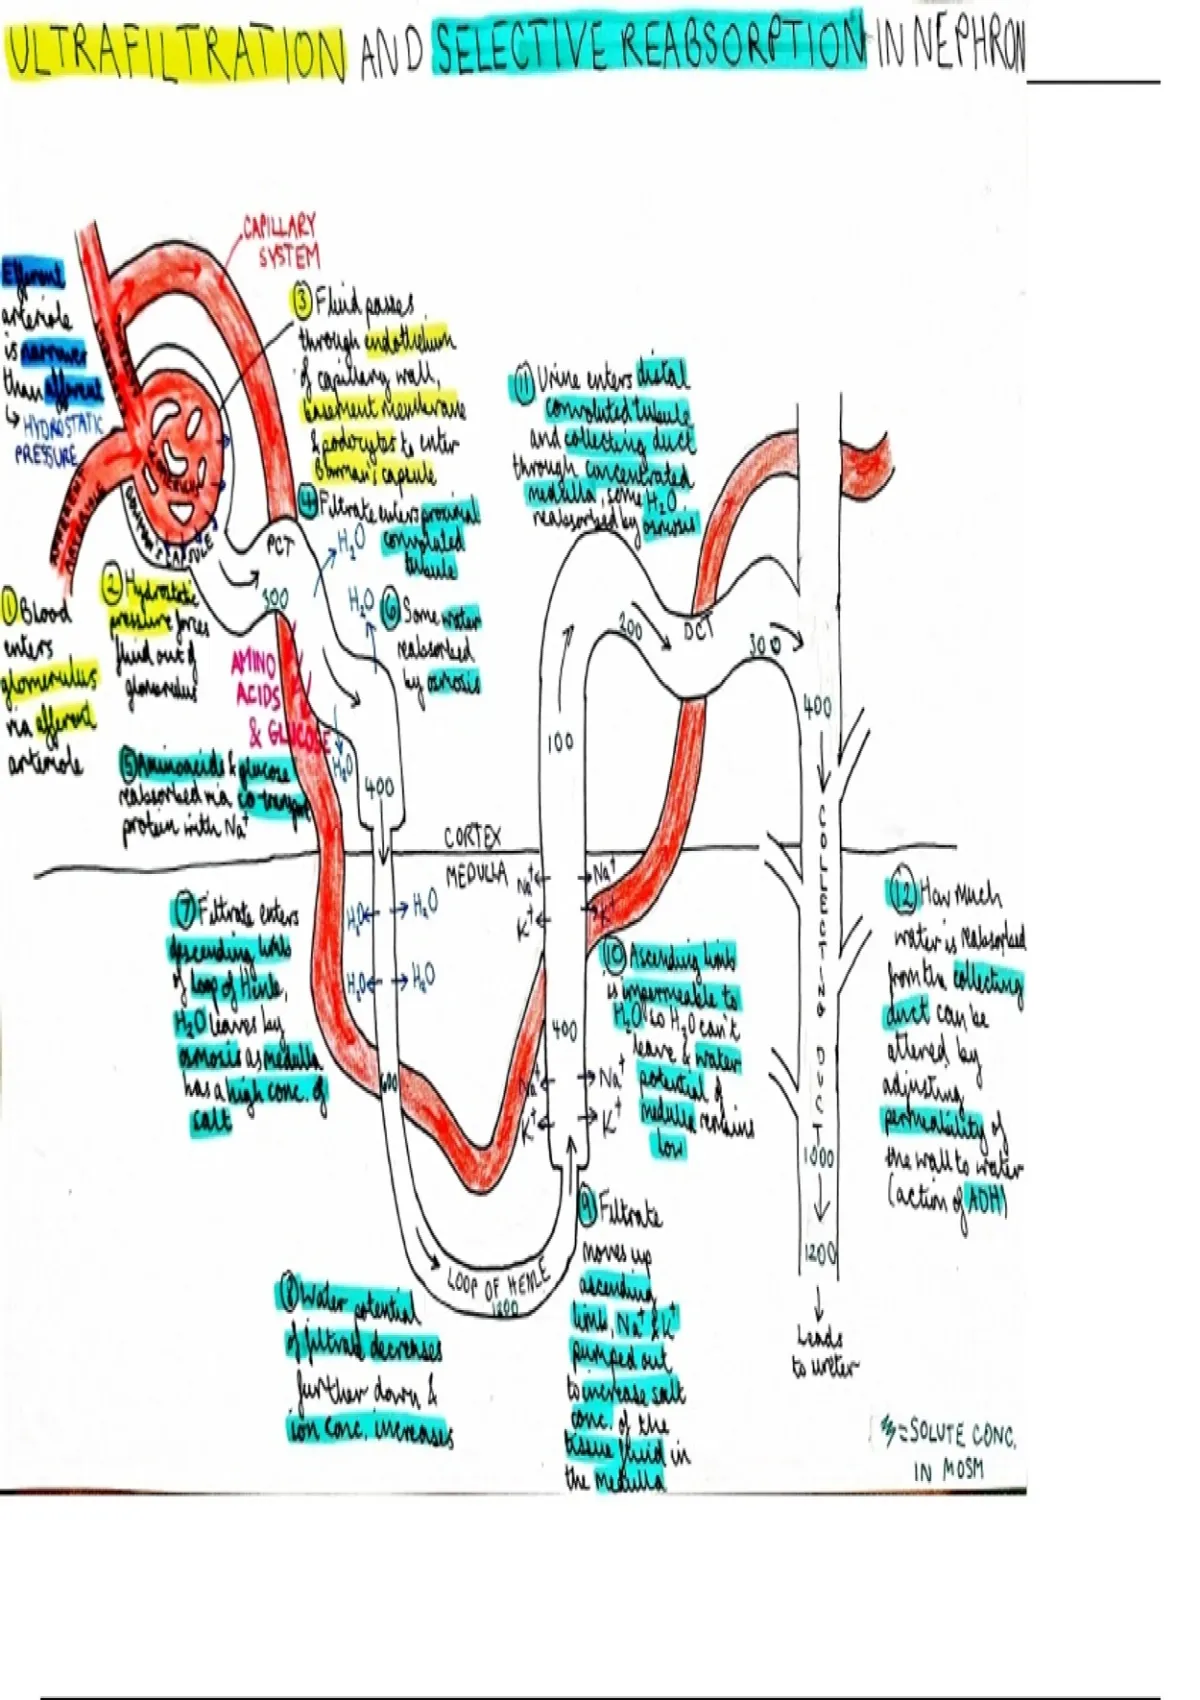 ULTRAFILTRATION AND SELECTIVE REABSORPTION IN NEPHRON
CAPILLARY
SYSTEM
Efferent
arteriole
is narrower
than afferent
↳ HYDROSTATIC
PRESSURE
AFFERENT
ARTERIOLE
BOWMAN'S CAPSULE
① Blood
enters
glomerulus
via afferent
arteriole
② Hydrostatic
pressure forces
fluid out of
glomerulus
③ Fluid passes
through endothelium
of capillary wall,
basement membrane
& podocytes to enter
Bowman's capsule
④ Filtrate enters proximal
convoluted
tubule
PCT
300
H₂O
H₂O
AMINO
ACIDS
& GLUCOSE
H₂O
400
⑤ Amino acids & glucose
reabsorbed via co-transport
protein with Na⁺
⑥ Some water
reabsorbed
by osmosis
CORTEX
MEDULLA
⑦ Filtrate enters
descending limb
of loop of Henle,
H₂O leaves by
osmosis as medulla
has a high conc. of
salt
H₂O
H₂O
H₂O
H₂O
600
⑧ Water potential
of filtrate decreases
further down &
ion conc. increases
LOOP OF HENLE
1200
⑨ Filtrate
moves up
ascending
limb, Na⁺ & K⁺
pumped out
to increase salt
conc. of the
tissue fluid in
the medulla
Na⁺
Na⁺
K⁺
K⁺
400
Na⁺
Na⁺
K⁺
K⁺
100
⑩ Ascending limb
is impermeable to
H₂O so H₂O can't
leave & water
potential of
medulla remains
low
⑪ Urine enters distal
convoluted tubule
and collecting duct
through concentrated
medulla, some H₂O
reabsorbed by osmosis
200
DCT
300
400
COLLECTING DUCT
1000
1200
Leads
to ureter
⑫ How much
water is reabsorbed
from the collecting
duct can be
altered by
adjusting
permeability of
the wall to water
(action of ADH)
= SOLUTE CONC.
IN MOSM